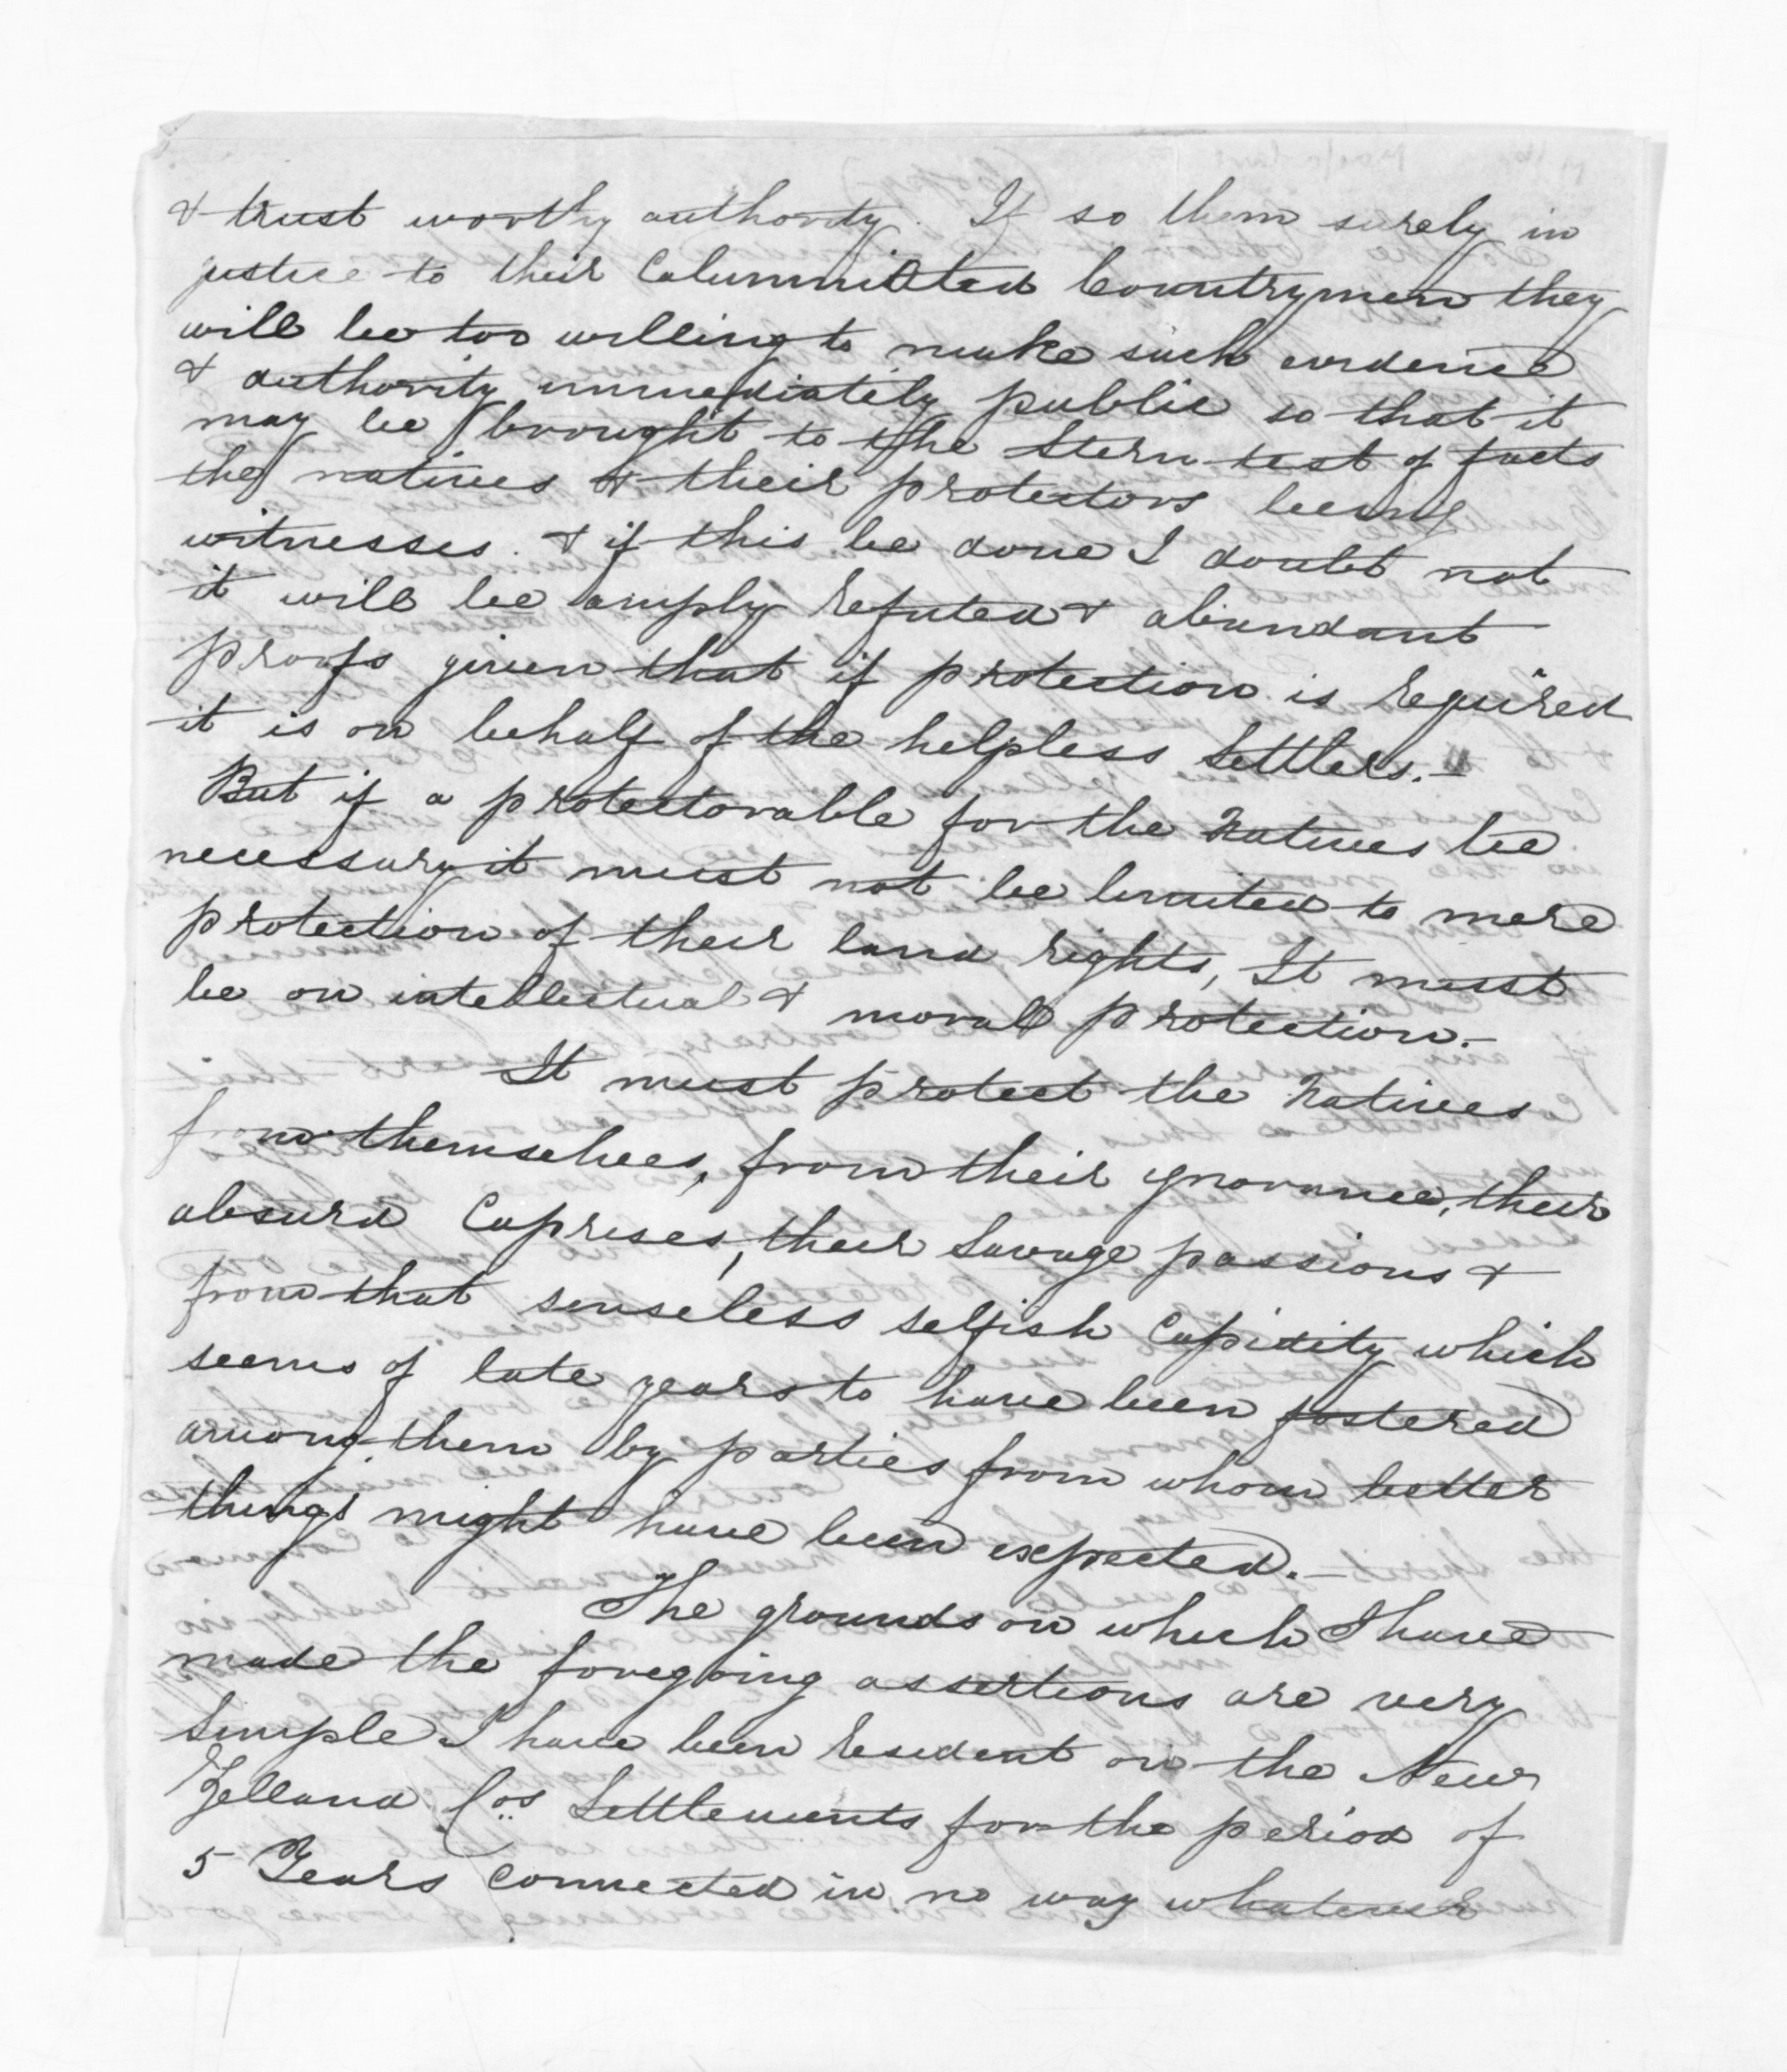 & trust worthy authority. If so them surely in
justice to their Calumniated Countrymen they
will be too willing to make such evidence
& authority immediately public so that it
may be brought to the stern test of facts
the natives & their protectors being
witnesses. & if this be done I doubt not
it will be amply refuted & abundant
proofs given that if protection is required
it is on behalf of the helpless Settlers.-
But if a protectorable for the Natives be
necessary it must not be limited to mere
protection of their land rights, It must
be on intellectual & moral protection.-
It must protect the Natives
from themselves, from their ignorance, their
absurd Caprises, their Savage passions &
from that senseless selfish Cupidity which
seems of late years to have been fostered
among them by parties from whom better
things might have been expected.-
The grounds on which I have
made the foregoing assertions are very
Simple I have been resident on the New
Zelland Cos Settlements for the period of
5 Years connected in no way whatever